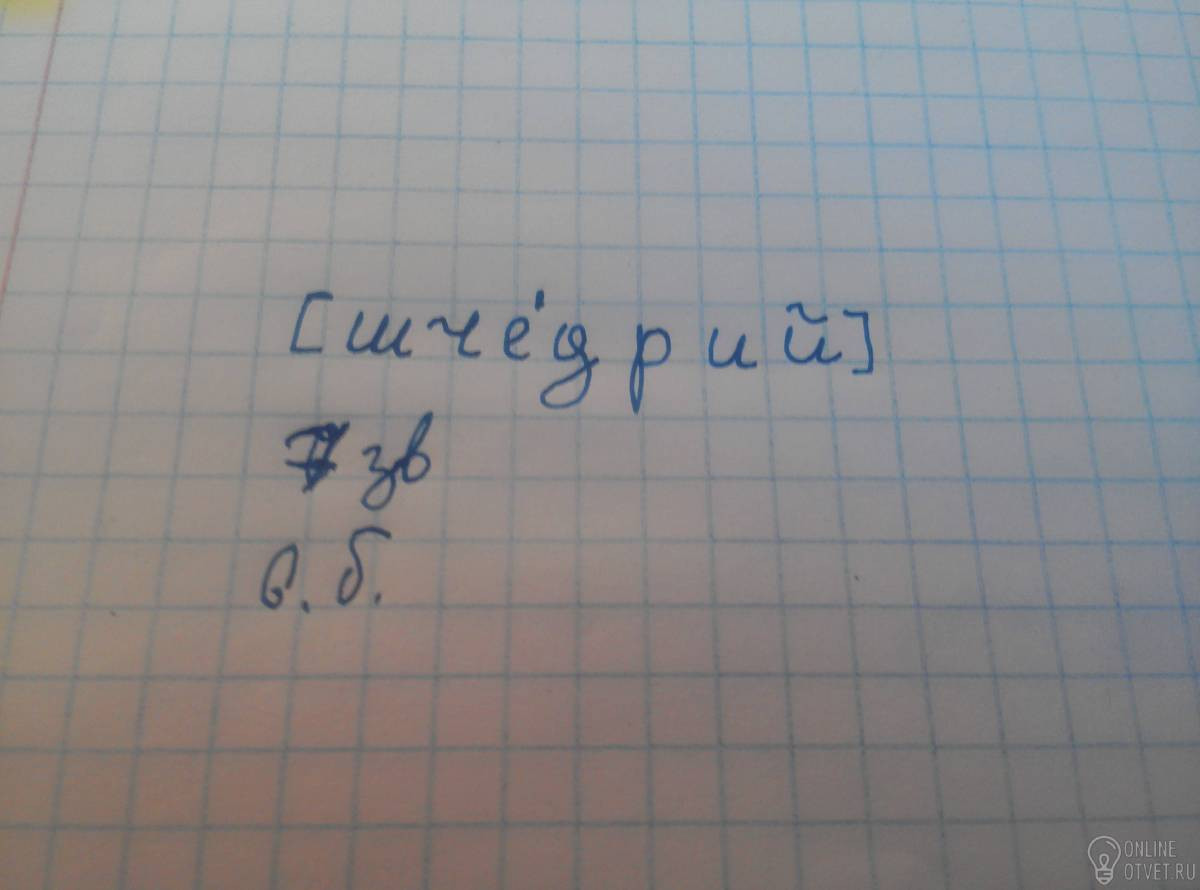 [шче́дрий]
7 зв
6. б.
ONLINE
OTVET.RU